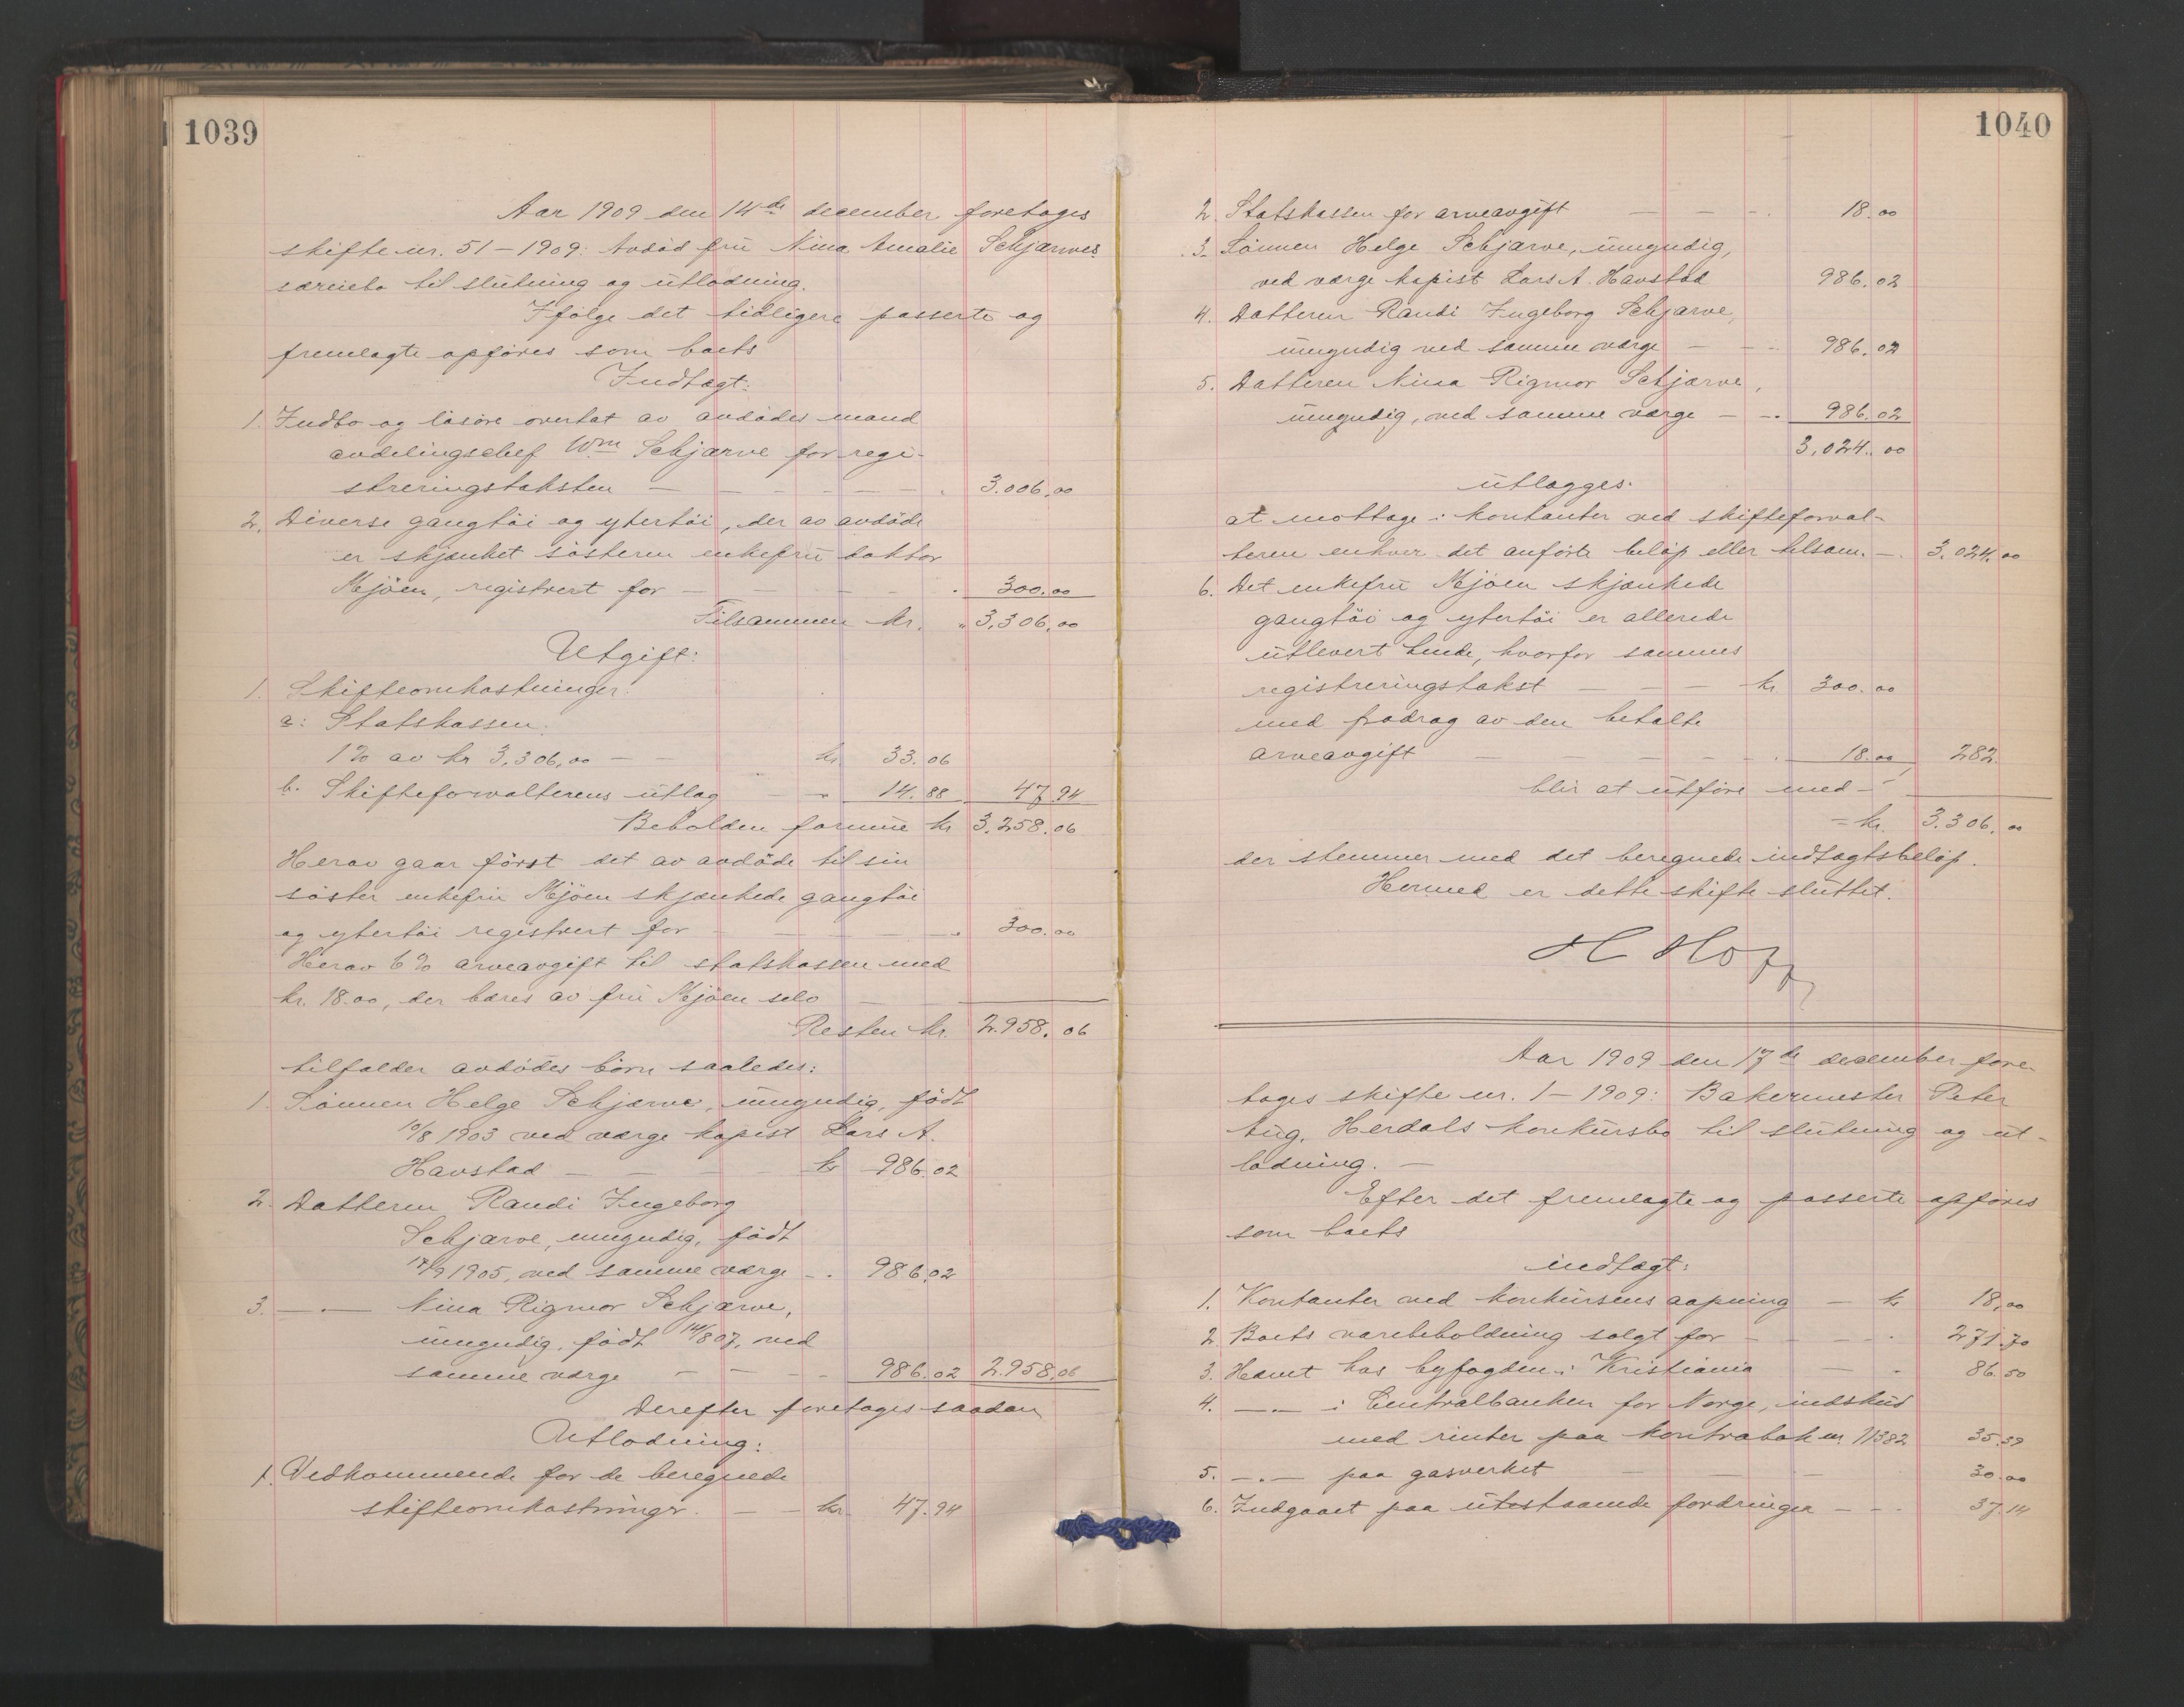 1039
Aar 1909 den 14de december foretages
skifte nr. 51-1909: Avdød frü Nina Amalie Schjærves
særiebo til slütning og ütlodning.
Ifølge det tidligere passerte og
fremlagte opføres som boets
Indtægt:
1. Indbo og løsøre overtat av avdødes mand
avdelingschef Wm Schjærve for regi-
streringstaksten — 3.006,00
2. Diverse gangtøi og ytertøi, der av avdøde
er skjænket søsteren enkefrü doktor
Mjøen, registrert for — 300.00
Tilsammen kr. " 3,306,00
Utgift:
1. Skifteomkostninger:
a: Statskassen:
1% av kr 3,306,00 — kr 33.06
b. Skifteforvalterens ütlæg — " 14.88 47.94
Beholden formüe kr 3.258.06
Herav gaar først det av avdøde til sin
søster enkefrü Mjøen skjænkede gangtøi
og ytertøi registrert for — 300.00
Herav 6% arveavgift til statskassen med
kr. 18.00, der bæres av frü Mjøen selv —
Resten kr. 2.958.06
tilfalder avdødes børn saaledes:
1. Sønnen Helge Schjærve, ümyndig, født
10/8 1903 ved værge kopist Lars A.
Havstad — kr 986.02
2. Datteren Randi Ingeborg
Schjærve, ümyndig, født
17/9 1905, ved samme værge — 986.02
3. —„— Nina Rigmor Schjærve,
ümyndig, født 14/8 07, ved
samme værge — 986.02 2.958,06
Derefter foretages saadan
Utlodning:
1. Vedkommende for de beregnede
skifteomkostninger. — kr. 47.94
1040
2. Statskassen for arveavgift — 18.00
3. Sønnen Helge Schjærve, ümyndig,
ved værge kopist Lars A. Havstad 986.02
4. Datteren Randi Ingeborg Schjærve,
ümyndig ved samme værge — 986.02
5. Datteren Nina Rigmor Schjærve,
ümyndig, ved samme værge — 986.02
3,024.00
ütlægges:
at mottage i kontanter ved skifteforval-
teren enhver det anførte beløp eller tilsam. — 3.024.00
6. Det enkefrü Mjøen skjænkede
gangtøi og ytertøi er allerede
ütlevert hende, hvorfor sammes
registreringstakst — kr 300.00
med fradrag av den betalte
arveavgift — 18.00 282.
blir at ütføre med —
= kr. 3.306.00
der stemmer med det beregnede indtægtsbeløp.
Hermed er dette skifte slüttet.
H Hoff
Aar 1909 den 17de december fore-
tages skifte nr. 1-1909: Bakermester Peter
Aug. Herdals konkürsbo til slütning og üt-
lodning. —
Efter det fremlagte og passerte opføres
som boets
indtægt:
1. Kontanter ved konkürsens aapning — kr 18,00
2. Boets varebeholdning solgt for — 271.70
3. Hævet hos byfogden i Kristiania — 86.50
4. —„— i Centralbanken for Norge, indsküd
med renter paa kontrabok nr. 11382 35.39
5. —„— paa gasverket — 30.00
6. Indgaaet paa ütestaaende fordringer — 37.14